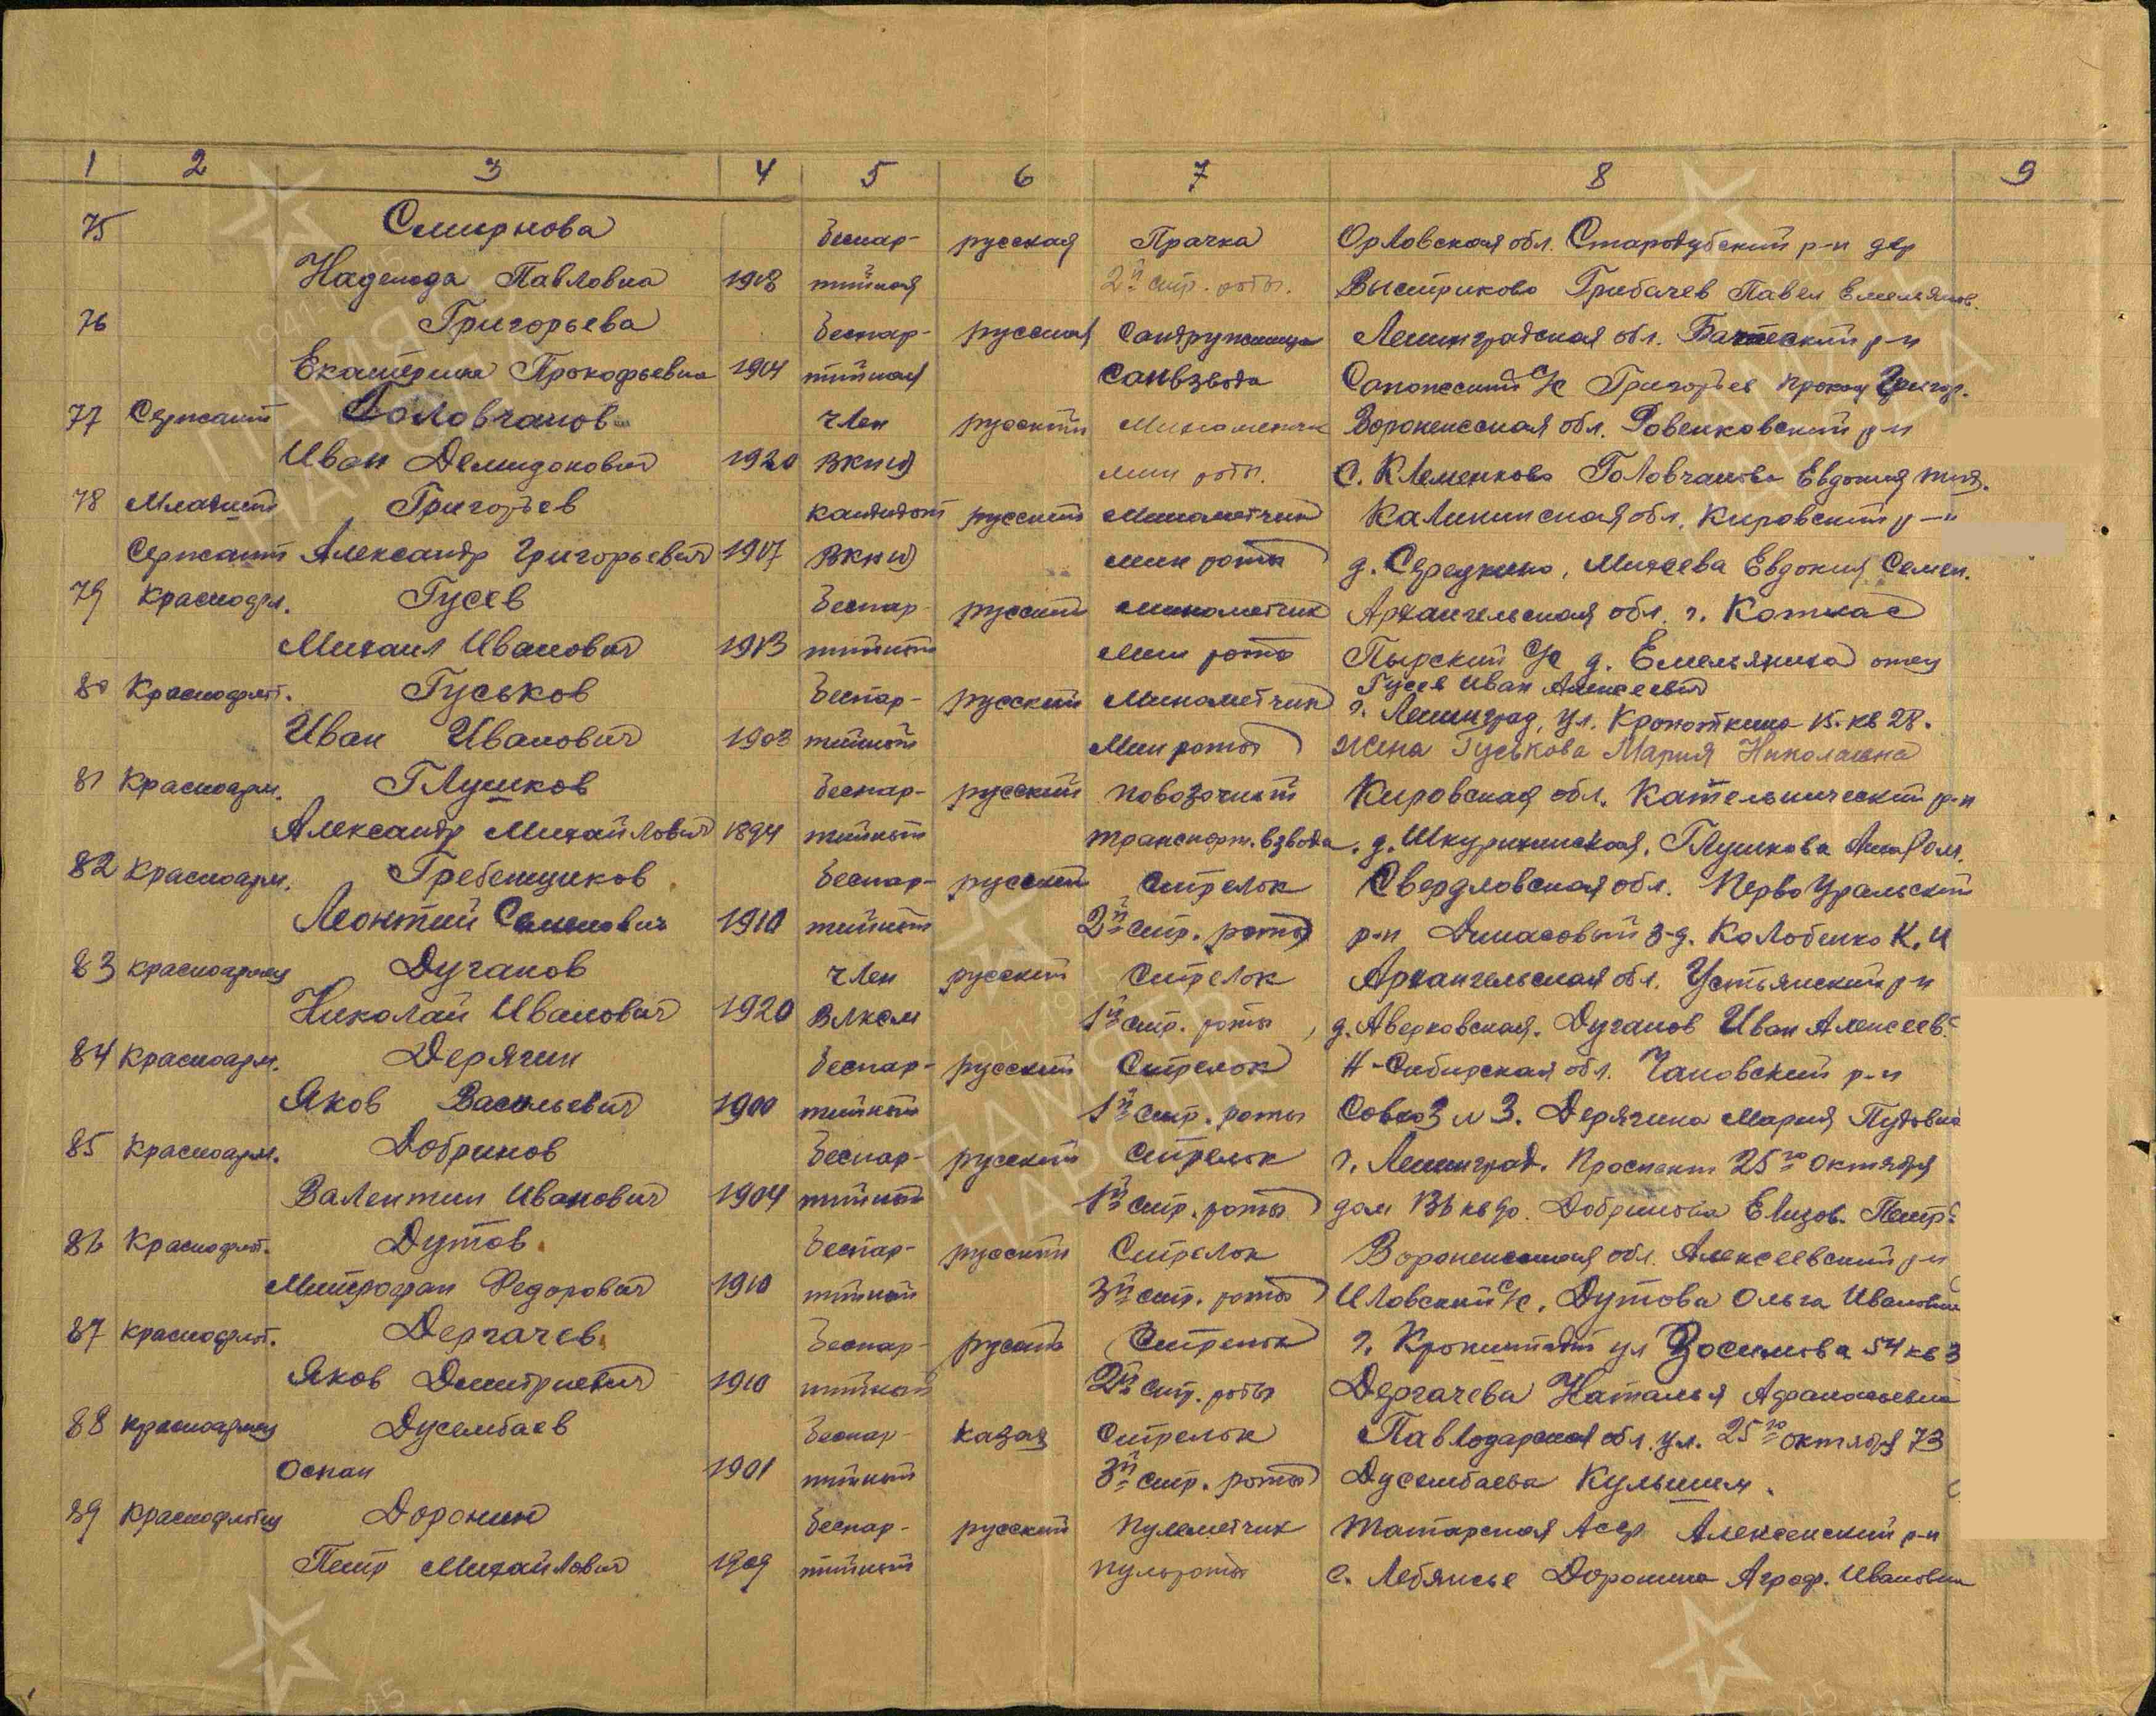 1 2 3 4 5 6 7 8 9
75 Смирнова беспар- русская Прачка Орловская обл. Стародубский р-н дер
Надежда Павловна 1918 тийная 2й стр. роты. Выстриково Грибачев Павел Емельянов.
76 Григорьева беспар- русская Сандружинница Ленинградская обл. Батецкий р-н
Екатерина Прокофьевна 1904 тийная Санвзвода с/с Григорьев Прокоф Григор.
77 Сержант Головчанов член русский Минометчик Воронежская обл. Ровенковский р-н
Иван Демидокович 1920 ВКП(б) мин роты. с. Клеменково Головчанова Евдокия
78 Младший Григорьев кандидат русский Минометчик Калининская обл. Кировский р-н
Сержант Александр Григорьевич 1907 ВКП(б) мин роты д. Середкино, Михеева Евдокия Семен.
79 Краснофл. Гусев беспар- русский минометчик Архангельская обл. г. Котлас
Михаил Иванович 1913 тийный мин роты Пырский с/с д. Емельяниха отец
Гусев Иван Алексеевич
80 Краснофлот. Гуськов беспар- русский Минометчик г. Ленинград, ул. Кропоткина 15. кв 28.
Иван Иванович 1903 тийный Мин роты жена Гуськова Мария Николаевна
81 Красноарм. Глушков беспар- русский повозочный Кировская обл. Кательнический р-н
Александр Михайлович 1894 тийный транспорт. взвода. д. Шкурихинская, Глушкова Анна Ром.
82 Красноарм. Гребенщиков беспар- русский стрелок Свердловская обл. Первоуральский
Леонтий Семенович 1910 тийный 2й стр. роты р-н Динасовый з-д. Колобенко К. И
83 красноармец Дуганов член русский стрелок Архангельская обл. Устьянский р-н
Николай Иванович 1920 ВЛКСМ 1й стр. роты, д. Аверковская. Дуганов Иван Алексеев.
84 Красноарм. Дерягин беспар- русский Стрелок Н-Сибирская обл. Чановский р-н
Яков Васильевич 1900 тийный 1й стр. роты Совхоз № 3. Дерягина Мария Пудовна
85 Красноарм. Добринов беспар- русский стрелок г. Ленинград. Проспект 25го Октября
Валентин Иванович 1904 тийный 1й стр. роты дом 136 кв 90. Добринова Елизов. Петр.
86 Краснофлот. Дутов беспар- русский Стрелок Воронежская обл. Алексеевский р-н
Митрофан Федорович 1910 тийный 3й стр. роты Иловский с/с, Дутова Ольга Ивановна
87 краснофлот. Дергачев беспар- русский Стрелок г. Кронштадт ул Зосимова 54 кв 3
Яков Дмитриевич 1910 тийный 2й стр. роты Дергачева Наталья Афанасьевна
88 красноармец Дусембаев беспар- казах Стрелок Павлодарская обл. ул. 25го октября 73
Оспан 1901 тийный 3й стр. роты Дусембаева Кульшим.
89 Краснофлотец Доронин беспар- русский пулеметчик Татарская Асср Алексенский р-н
Петр Михайлович 1909 тийный пульроты с. Лебяжье Доронина Аграф. Ивановна